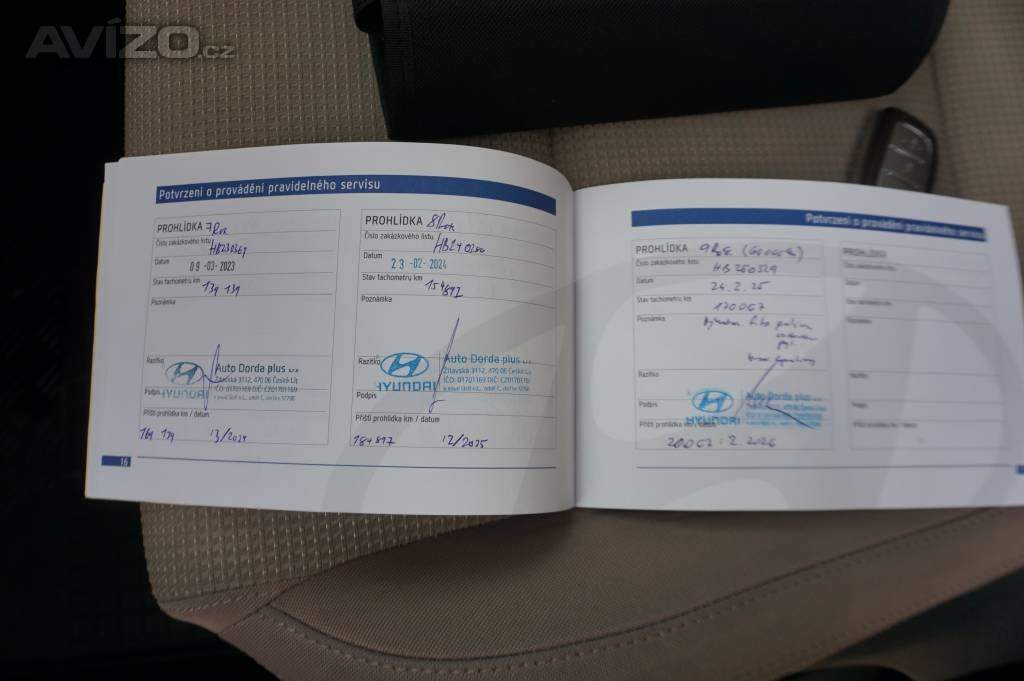 AVÍZO.cz
Potvrzení o provádění pravidelného servisu
PROHLÍDKA 7 Rok
Číslo zakázkového listu
HB230369
Datum
09-03-2023
Stav tachometru km
139 139
Poznámka
Razítko
HYUNDAI
Auto Dorda plus s.r.o.
Žitavská 3112, 470 06 Česká Lípa
IČO: 01701169 DIČ: CZ01701169
Podpis
Příští prohlídka km / datum
169 139 /3/2024
16
PROHLÍDKA 8 Rok
Číslo zakázkového listu
Datum
23-02-2024
Stav tachometru km
154 897
Poznámka
Razítko
HYUNDAI
Auto Dorda plus s.r.o.
Žitavská 3112, 470 06 Česká Lípa
IČO: 01701169 DIČ: CZ01701169
Podpis
Příští prohlídka km / datum
184 897 /2/2025
Potvrzení o provádění pravidelného servisu
PROHLÍDKA
Číslo zakázkového listu
HB250329
Datum
24.2.25
Stav tachometru km
170067
Poznámka
Razítko
HYUNDAI
Auto Dorda plus
Podpis
Příští prohlídka km / datum
2. 2026
PROHLÍDKA
Číslo zakázkového listu
Datum
Stav tachometru km
Poznámka
Razítko
Podpis
Příští prohlídka km / datum